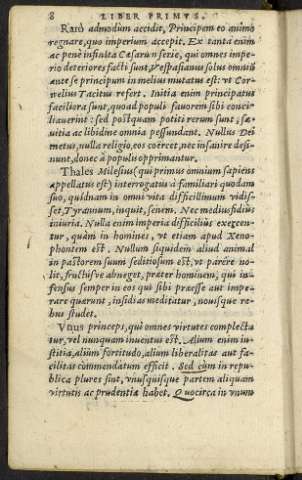 8 LIBER PRIMVS.
Rarò admodùm accidit, Principem eo animo
regnare, quo imperium accepit. Ex tanta enim
ac penè infinita Cæsarũ serie, qui omnes impe-
rio deteriores facti sunt, Vespasianus solus omniũ
ante se principum in melius mutatus est: vt Cor-
nelius Tacitus refert. Initia enim principatus
faciliora sunt, quo ad populi fauorem sibi conci-
liauerint: sed postquam potiti rerum sunt, sæ-
uitia ac libidine omnia pessundant. Nullus Dei
metus, nulla religio, eos coërcet, nec insanire desi-
nunt, donec à populis opprimantur.
Thales Milesius (qui primus omnium sapiens
appellatus est) interrogatus à familiari quodam
suo, quidnam in omni vita difficillimum vidis-
set, Tyrannum, inquit, senem. Nec mediusfidius
iniuria. Nulla enim imperia difficiliùs exercen-
tur, quàm in homines, vt etiam apud Xeno-
phontem est. Nullum siquidem aliud animal
in pastorem suum seditiosum est, vt parêre no-
lit, fructúsve abneget, præter hominem, qui in-
fensus semper in eos qui sibi præesse aut impe-
rare quærunt, insidias meditatur, nouísque re-
bus studet.
Vnus princeps, qui omnes virtutes complecta
tur, vel nunquam inuentus est. Alium enim iu-
stitia, aliũm fortitudo, alium liberalitas aut fa-
cilitas commendatum efficit. Sed cùm in repu-
blica plures sint, vnusquisque partem aliquam
virtutis ac prudentiæ habet. Quocirca in vnum